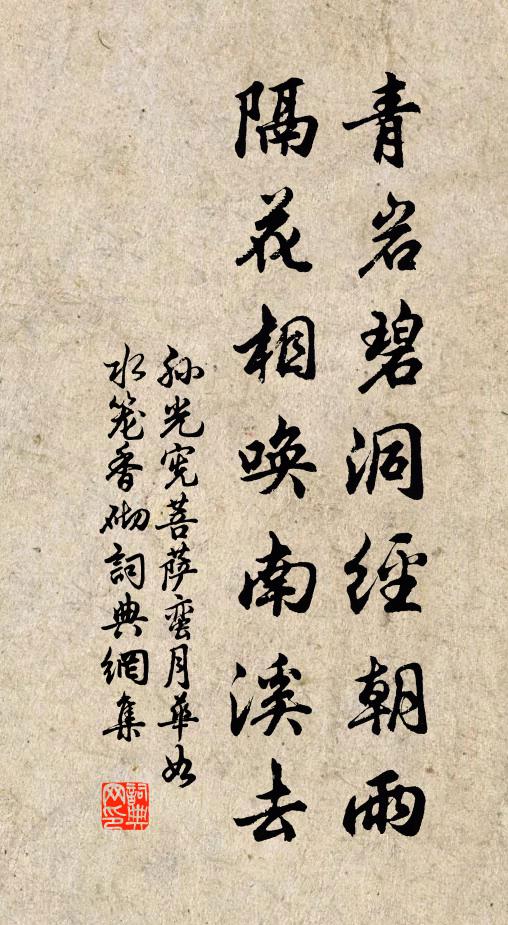 青岩碧洞經朝雨
隔花相唤南溪去
孙光宪菩萨蛮月華如
水笼香砌詞典網集
詞典网印